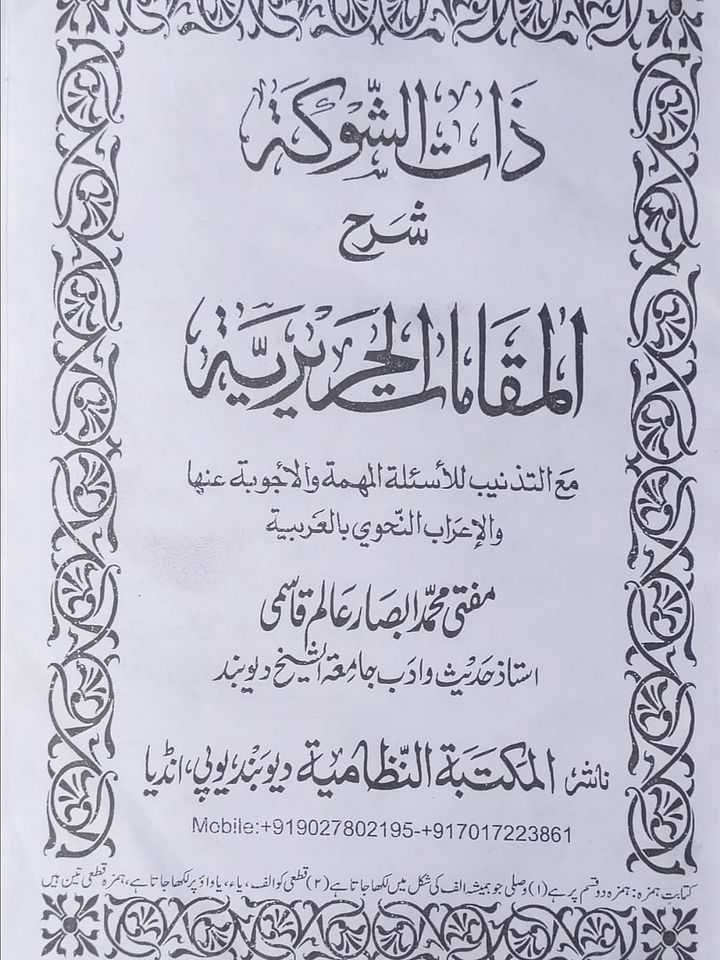 ذَات الشَّوْكَة
شَرح
المَقَامَات الحَرِيْرِيَّة
مَعَ التذنيب للأسئلة المهمة والأجوبة عنها
والإعراب النّحوي بالعَربية
مفتی محمّد ابصار عالم قاسمی
استاذ حدیث وادب جامعۃ الشیخ دیوبند
ناشر المکتبَة النّظامیة دیوبند، یوپی، انڈیا
Mobile:+919027802195-+917017223861
کتابت ہمزہ: ہمزہ دو قسم پر ہے (۱) وصلی جو ہمیشہ الف کی شکل میں لکھا جاتا ہے (۲) قطعی کو الف، یاء، یا واؤ پر لکھا جاتا ہے، ہمزہ قطعی تین ہیں